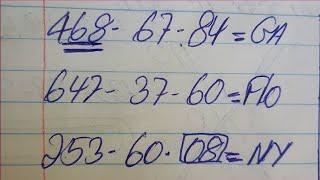 468-67-84=GA
647-37-60=Flo
253-60-08=NY